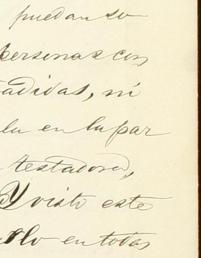 puedan so
personas con
adidas, ni
la en la par
testadora,
Y visto este
lo en todas